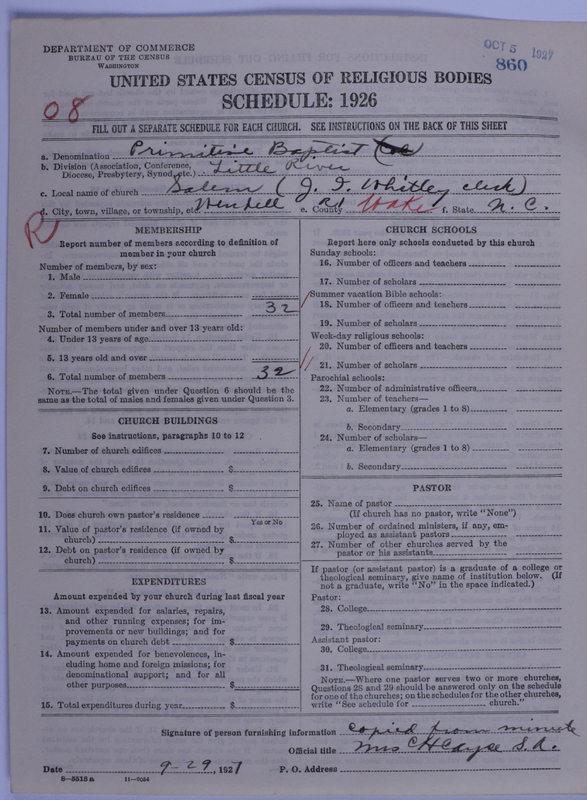 DEPARTMENT OF COMMERCE
BUREAU OF THE CENSUS
WASHINGTON
OCT 5 1927
860
UNITED STATES CENSUS OF RELIGIOUS BODIES
SCHEDULE: 1926
08
FILL OUT A SEPARATE SCHEDULE FOR EACH CHURCH. SEE INSTRUCTIONS ON THE BACK OF THIS SHEET
a. Denomination Primitive Baptist
b. Division (Association, Conference, Diocese, Presbytery, Synod, etc.) Little River
c. Local name of church Salem (J. T. Whitley clerk)
d. City, town, village, or township, etc. Wendell Rt e. County Wake f. State N. C.
R
MEMBERSHIP
Report number of members according to definition of
member in your church
Number of members, by sex:
1. Male
2. Female
3. Total number of members 32
Number of members under and over 13 years old:
4. Under 13 years of age
5. 13 years old and over
6. Total number of members 32
NOTE.—The total given under Question 6 should be the
same as the total of males and females given under Question 3.
CHURCH BUILDINGS
See instructions, paragraphs 10 to 12
7. Number of church edifices
8. Value of church edifices $
9. Debt on church edifices $
10. Does church own pastor's residence
Yes or No
11. Value of pastor's residence (if owned by
church) $
12. Debt on pastor's residence (if owned by
church) $
EXPENDITURES
Amount expended by your church during last fiscal year
13. Amount expended for salaries, repairs,
and other running expenses; for im-
provements or new buildings; and for
payments on church debt $
14. Amount expended for benevolences, in-
cluding home and foreign missions; for
denominational support; and for all
other purposes $
15. Total expenditures during year $
CHURCH SCHOOLS
Report here only schools conducted by this church
Sunday schools:
16. Number of officers and teachers
17. Number of scholars
Summer vacation Bible schools:
18. Number of officers and teachers
19. Number of scholars
Week-day religious schools:
20. Number of officers and teachers
21. Number of scholars
Parochial schools:
22. Number of administrative officers
23. Number of teachers—
a. Elementary (grades 1 to 8)
b. Secondary
24. Number of scholars—
a. Elementary (grades 1 to 8)
b. Secondary
PASTOR
25. Name of pastor
(If church has no pastor, write "None")
26. Number of ordained ministers, if any, em-
ployed as assistant pastors
27. Number of other churches served by the
pastor or his assistants
If pastor (or assistant pastor) is a graduate of a college or
theological seminary, give name of institution below. (If
not a graduate, write "No" in the space indicated.)
Pastor:
28. College
29. Theological seminary
Assistant pastor:
30. College
31. Theological seminary
NOTE.—Where one pastor serves two or more churches,
Questions 28 and 29 should be answered only on the schedule
for one of the churches; on the schedules for the other churches,
write "See schedule for church."
Signature of person furnishing information Copied from minute
Official title Mrs C H Cayce S. A.
Date 9-29, 1927 P. O. Address
8-5515a 11-9054